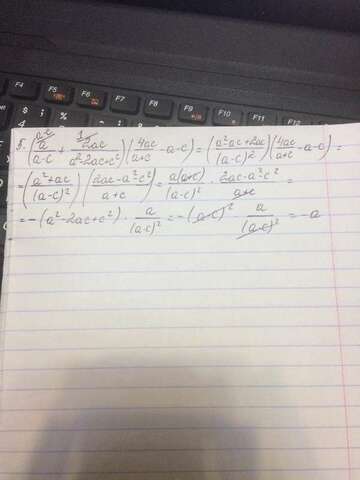 F4 F5 F6 F7 F8 F9 F10 F11 F12
5. (a/(a-c) + 2ac/(a²-2ac+c²))(4ac/(a+c) -a-c) = ((a²-ac+2ac)/(a-c)²)(4ac/(a+c) -a-c) =
= ((a²+ac)/(a-c)²)((2ac-a²-c²)/(a+c)) = a(a+c)/(a-c)² · (2ac-a²-c²)/(a+c) =
= -(a²-2ac+c²) · a/(a-c)² = -(a-c)² a/(a-c)² = -a